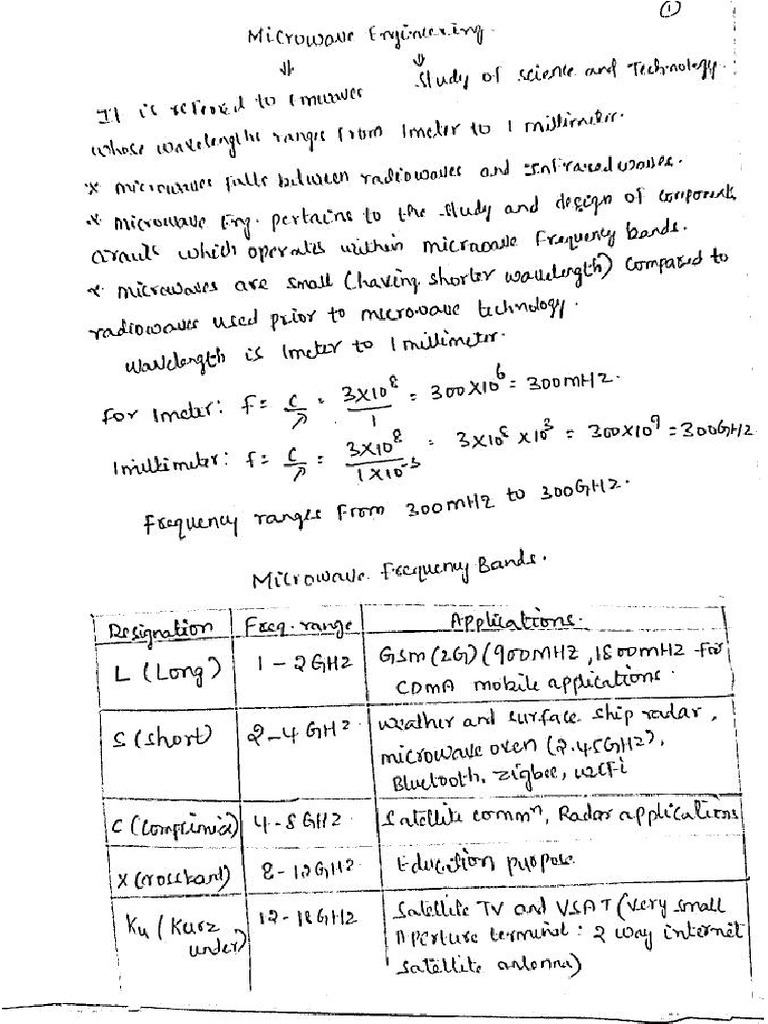 1
Microwave Engineering.
⇓ ⇓
It is refered to emwaves Study of science and Technology.
whose wavelengths ranges from 1meter to 1 millimeter.
* microwaves falls between radiowaves and Infrared waves.
* microwave Eng. pertains to the study and design of components,
which operates within microwave Frequency bands.
* microwaves are small (having shorter wavelength) compared to
radiowaves used prior to microwave technology.
wavelength is 1meter to 1 millimeter.
For 1meter: f = c/λ = 3×10⁸/1 = 300×10⁶ = 300mHz.
1millimeter: f = c/λ = 3×10⁸/1×10⁻³ = 3×10⁸ ×10³ = 300×10⁹ = 300GHz
Frequency ranges From 300mHz to 300GHz.
Microwave Frequency Bands.
Designation Freq. range Applications.
L (Long) 1 - 2GHz GSm (2G) (900MHz, 1800MHz for
CDMA mobile applications.
S (short) 2-4 GHz weather and surface ship radar,
microwave oven (2.45GHz),
Bluetooth, zigbee, wifi
C (Compromise) 4-8GHz Satellite commⁿ, Radar applications
X (crossband) 8-12GHz Education purpose
Ku (Kurz 12-18GHz Satellite TV and VSAT (very small
under) Aperture terminal: 2 way internet
satellite antenna)